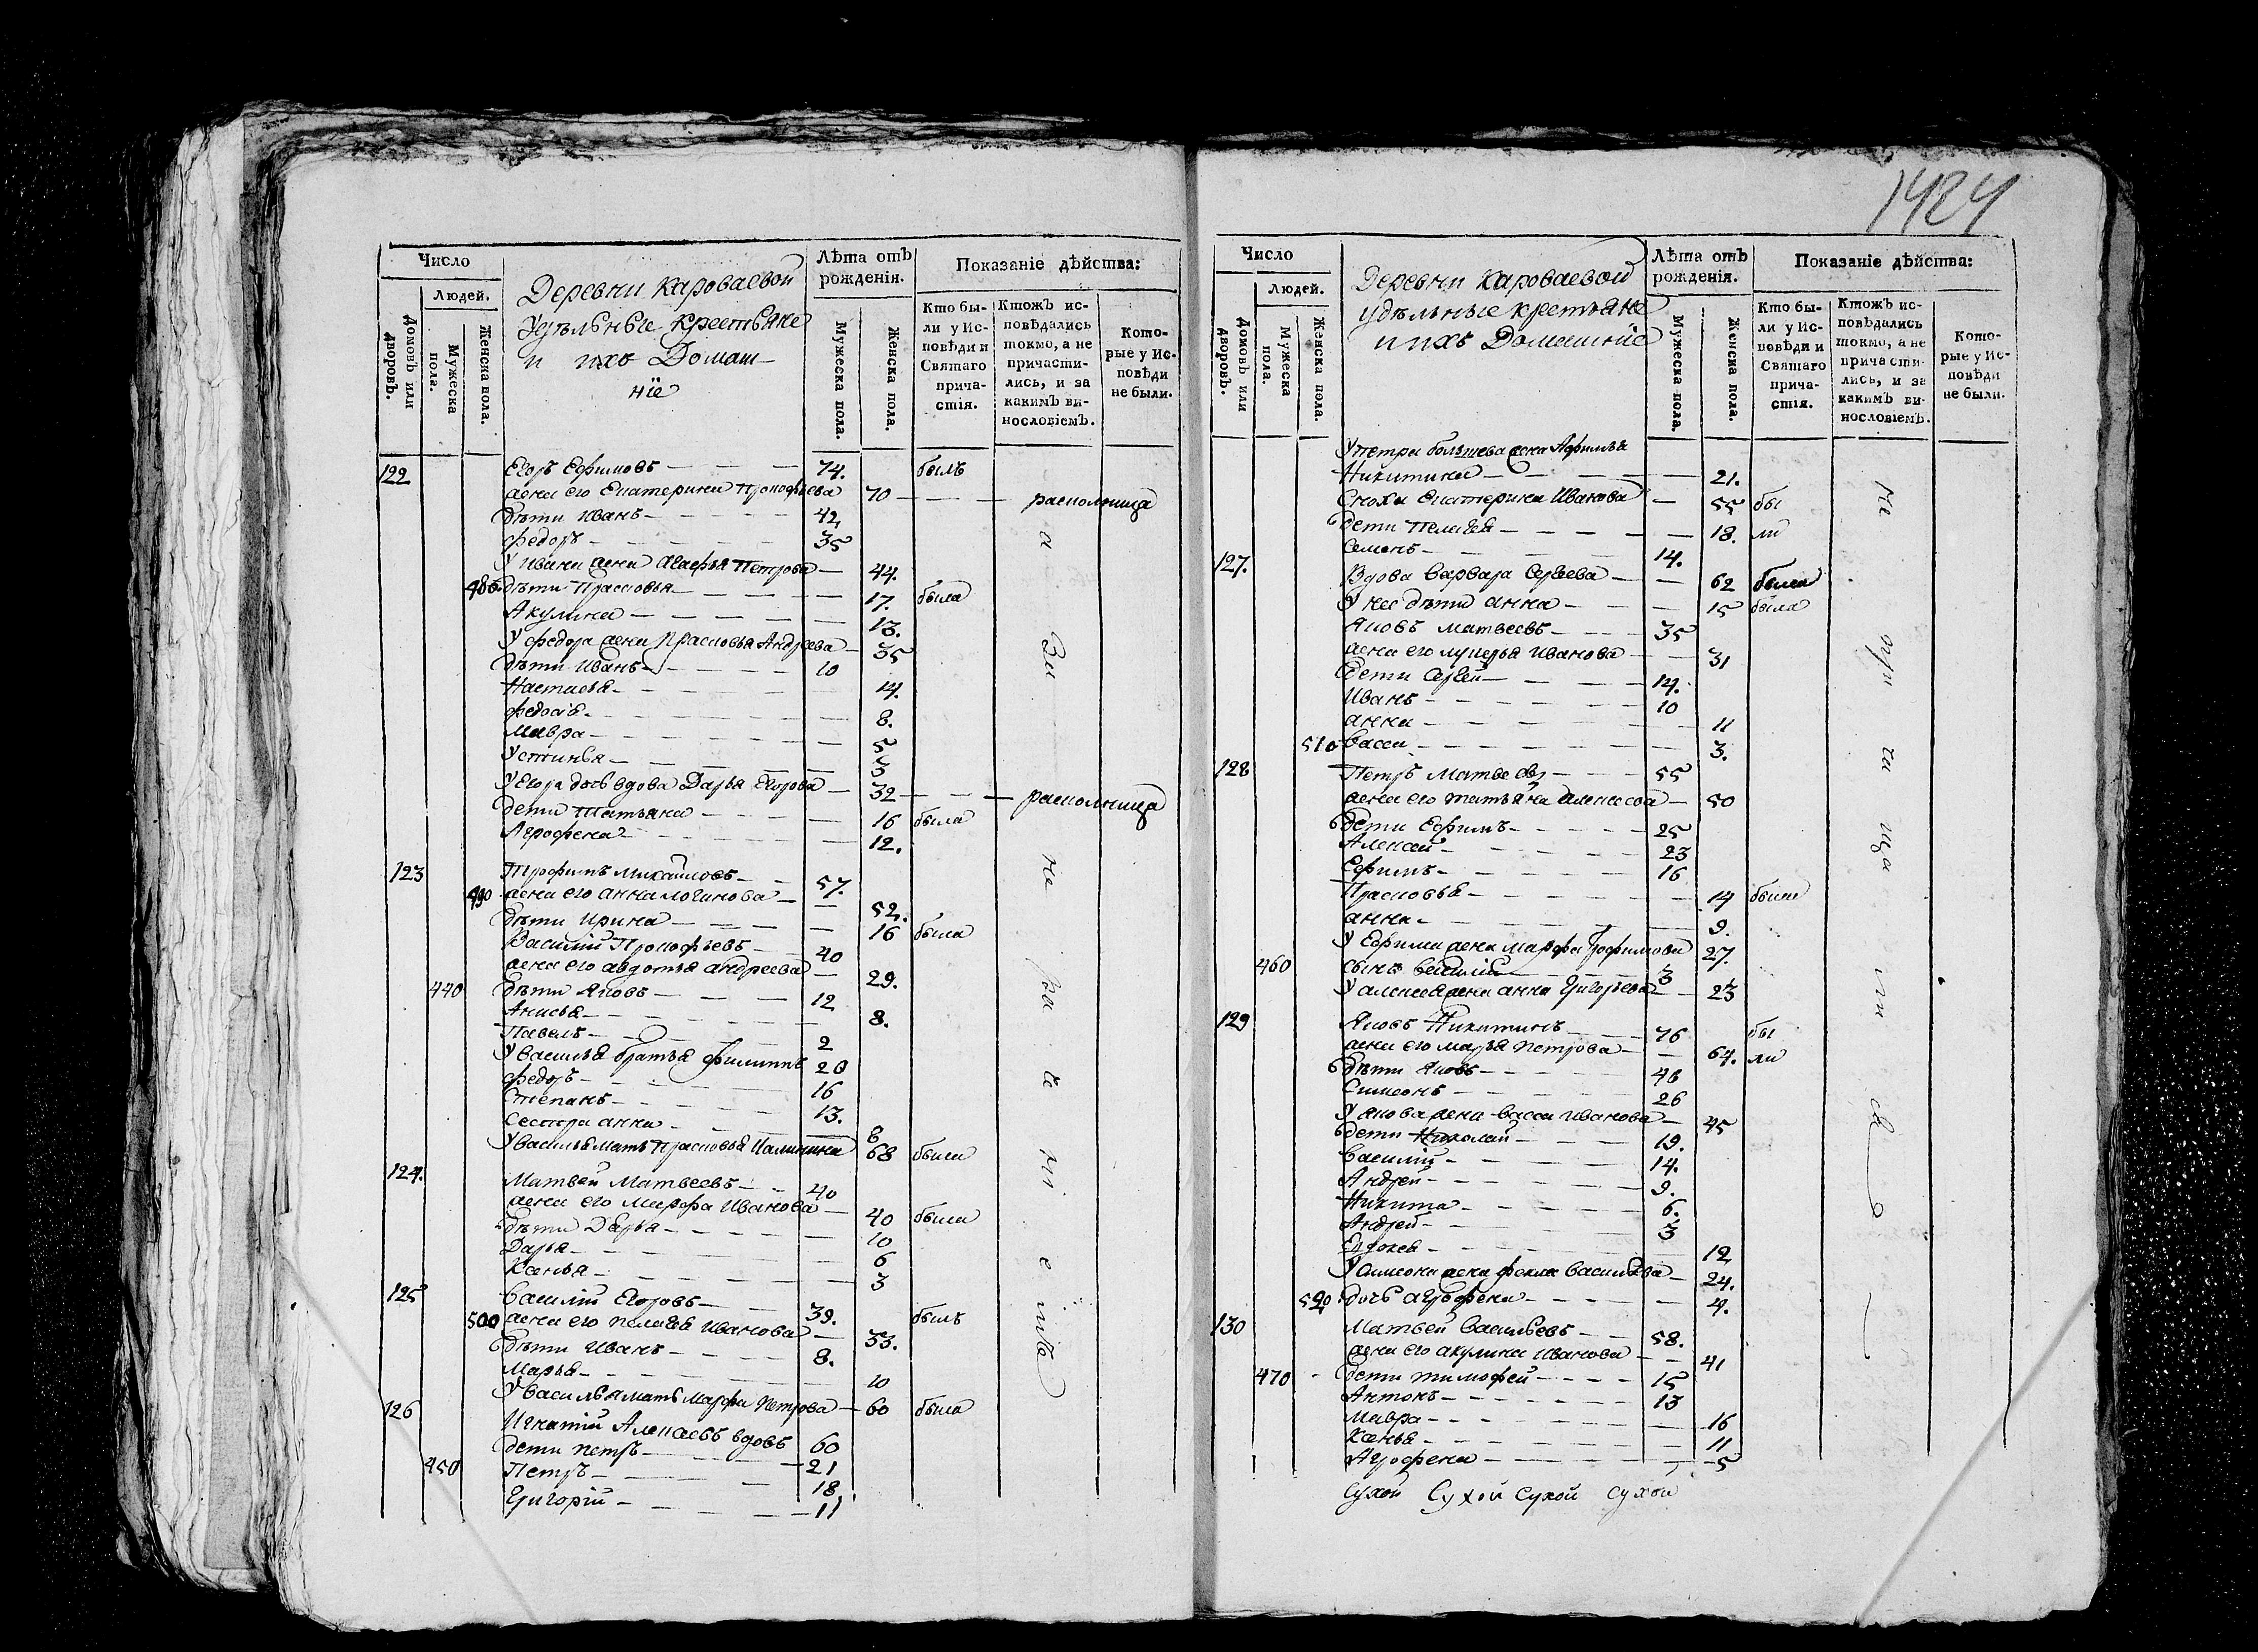 1424
Число
Людей.
Домовъ или дворовъ.
Мужеска пола.
Женска пола.
Деревни Караваевой
Удѣльные крестьяне
и ихъ Домаш-
ніе
Лѣта отъ рожденія.
Мужеска пола.
Женска пола.
Показаніе дѣйства:
Кто бы-
ли у Ис-
повѣди и
Святаго
прича-
стія.
Ктожъ ис-
повѣдались
токмо, а не
причасти-
лись, и за
какимъ ви-
нословіемъ.
Кото-
рые у Ис-
повѣди
не были.
122 Егоръ Ефимовъ 74. былъ
жена его Екатерина Прокофьева 70 раскольница
дѣти Иванъ 42
Федоръ 35
У Ивана жена Агафья Петрова 44.
480 дѣти Прасковья 17. была
Акулина 13.
У Федора жена Прасковья Андреева 35
дѣти Иванъ 10
Настасья 14.
Федосья 8.
Мавра 5
Устинья 3
У Егора дочь вдова Дарья Егорова 32 раскольница
дети Татьяна 16 была
Агрофена 12.
123 Трофимъ Михайловъ 57.
490 жена его Анна Логинова 52.
дѣти Ирина 16 была
Василій Прокофьевъ 40
жена его Авдотья Андреева 29.
440 дѣти Яковъ 12
Анисья 8.
Павелъ 2
У Василья братья Филиппъ 20
Федоръ 16
Степанъ 13.
Сестра Анна 8
У Василья мать Прасковья Калинина 68 была
124. Матвей Матвеевъ 40
жена его Марфа Иванова 40 была
дѣти Дарья 10
Дарья 6
Ксенья 3
125 Василій Егоровъ 39. былъ
500 жена его Пелагея Иванова 33.
дѣти Иванъ 8.
Марья 10
У Василья мать Марфа Петрова 60 была
126 Игнатій Алексеевъ вдовъ 60
дети Петръ 21
450 Петръ 18
Григорій 11
Число
Людей.
Домовъ или дворовъ.
Мужеска пола.
Женска пола.
Деревни Караваевой
удѣльные крестьяне
и ихъ Домашніе
Лѣта отъ рожденія.
Мужеска пола.
Женска пола.
Показаніе дѣйства:
Кто бы-
ли у Ис-
повѣди и
Святаго
прича-
стія.
Ктожъ ис-
повѣдались
токмо, а не
причасти-
лись, и за
какимъ ви-
нословіемъ.
Кото-
рые у Ис-
повѣди
не были.
У Петра большева жена Афимья
Никитина 21.
Сноха Екатерина Иванова 55 бы
дети Пелагея 18. ли
Семенъ 14.
127. Вдова Варвара Сергеева 62 была
У нее дѣти Анна 15 была
Яковъ Матвеевъ 35
жена его Лукерья Иванова 31
дети Сергей 14.
Иванъ 10
Анна 11
510 Васса 3.
128 Петръ Матвеевъ 55
жена его Татьяна Алексеева 50
дети Ефимъ 25
Алексей 23
Ефимъ 16
Прасковья 14 была
Анна 9.
У Ефима жена Марфа Трофимова 27.
460 сынъ Василій 3
У Алексея жена Анна Григорьева 23
129 Яковъ Никитинъ 76 бы
жена его Марья Петрова 64. ли
дѣти Яковъ 46
Симеонъ 26
У Якова жена Васса Иванова 45
дети Николай 19.
Василій 14.
Андрей 9.
Никита 6.
Андрей 3
Евдокея 12
У Симеона жена Фекла Васильева 24.
520 дочь Агрофена 4.
130 Матвей Васильевъ 58.
жена его Акулина Иванова 41
470 дети Тимофей 15
Антонъ 13
Мавра 16
Ксенья 11
Агрофена 5
Сухой Сухой Сухой Сухой